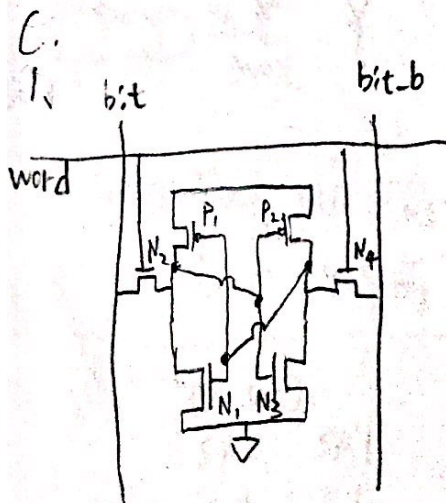 C.
1、
bit bit_b
word
P1 P2
N2 N4
N1 N3